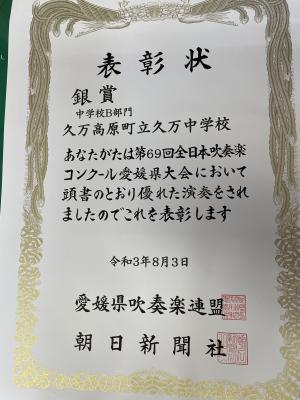 表彰状
銀賞
中学校B部門
久万高原町立久万中学校
あなたがたは第69回全日本吹奏楽
コンクール愛媛県大会において
頭書のとおり優れた演奏をされ
ましたのでこれを表彰します
令和3年8月3日
愛媛県吹奏楽連盟
朝日新聞社